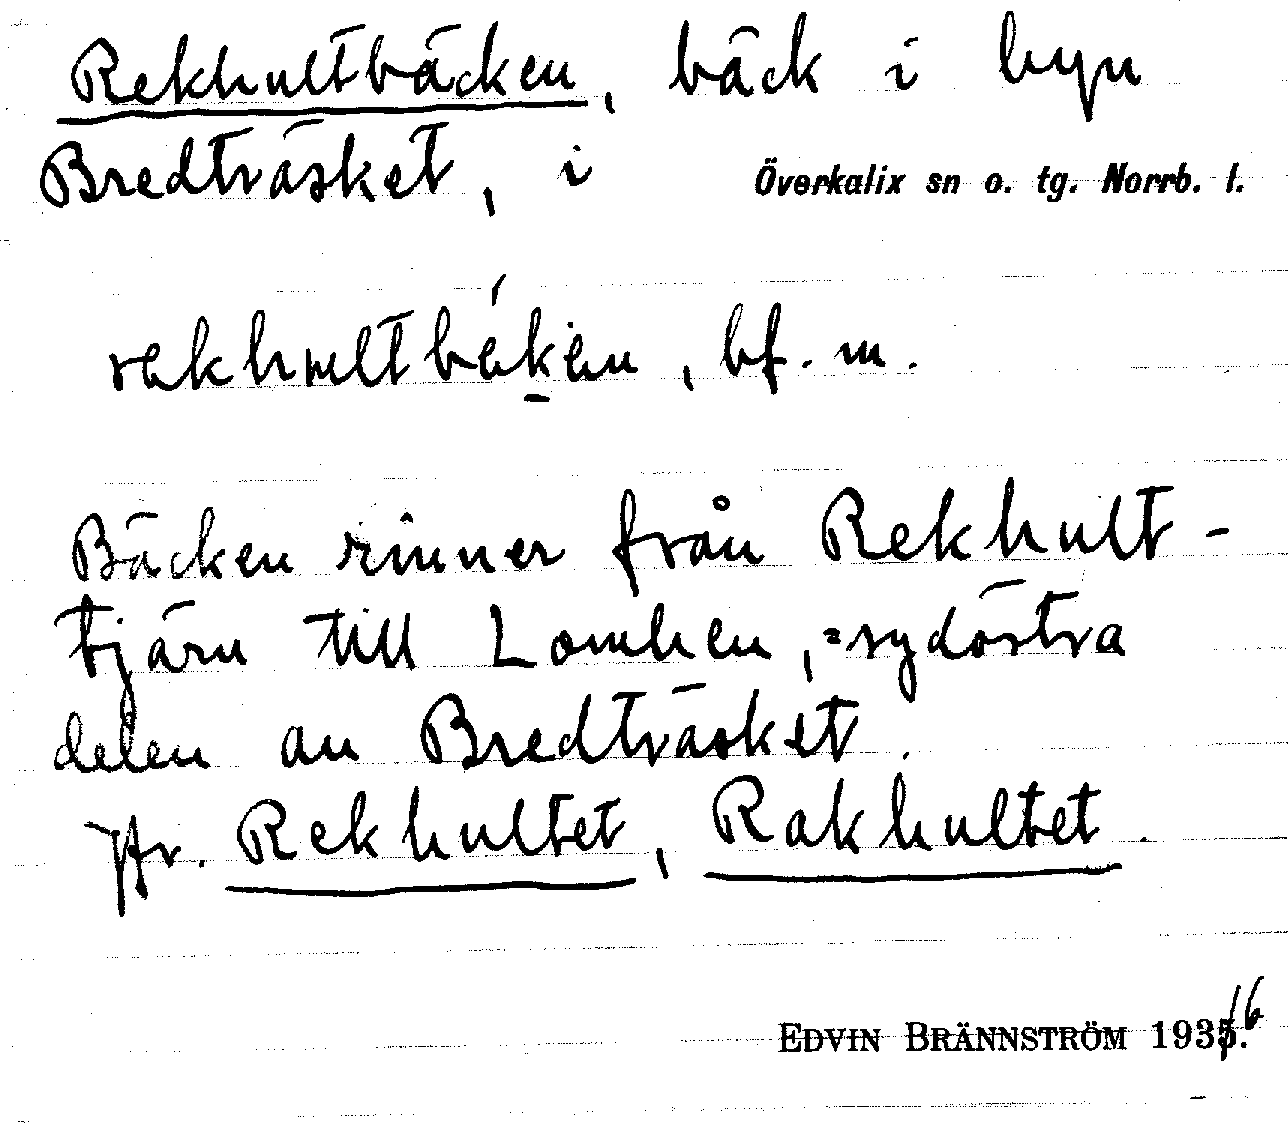 Rekhultbäcken, bäck i byn
Bredträsket, i Överkalix sn o. tg. Norrb. l.
rekhultbèken, bf. m.
Bäcken rinner från Rekhult-
tjärn till Lomben, =sydöstra
delen av Bredträsket.
Jfr. Rekhultet, Rakhultet.
EDVIN BRÄNNSTRÖM 1936.